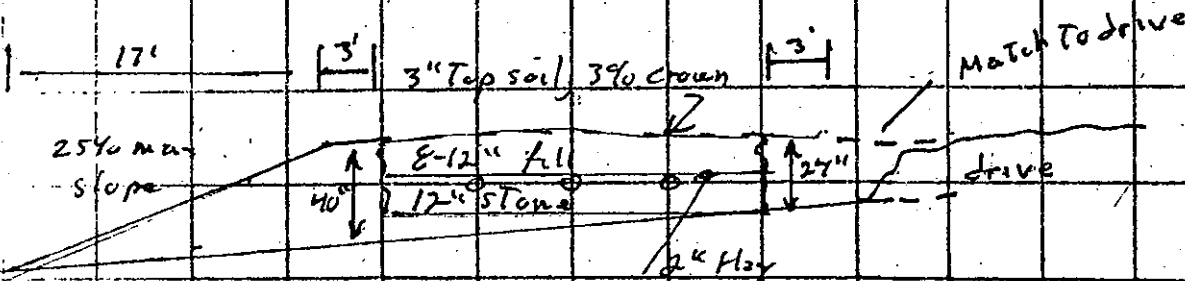 17'
3'
3" Top soil, 3% crown
3'
Match To drive
25% ma-
slope
40"
8-12" fill
12" stone
24"
drive
2" Hay